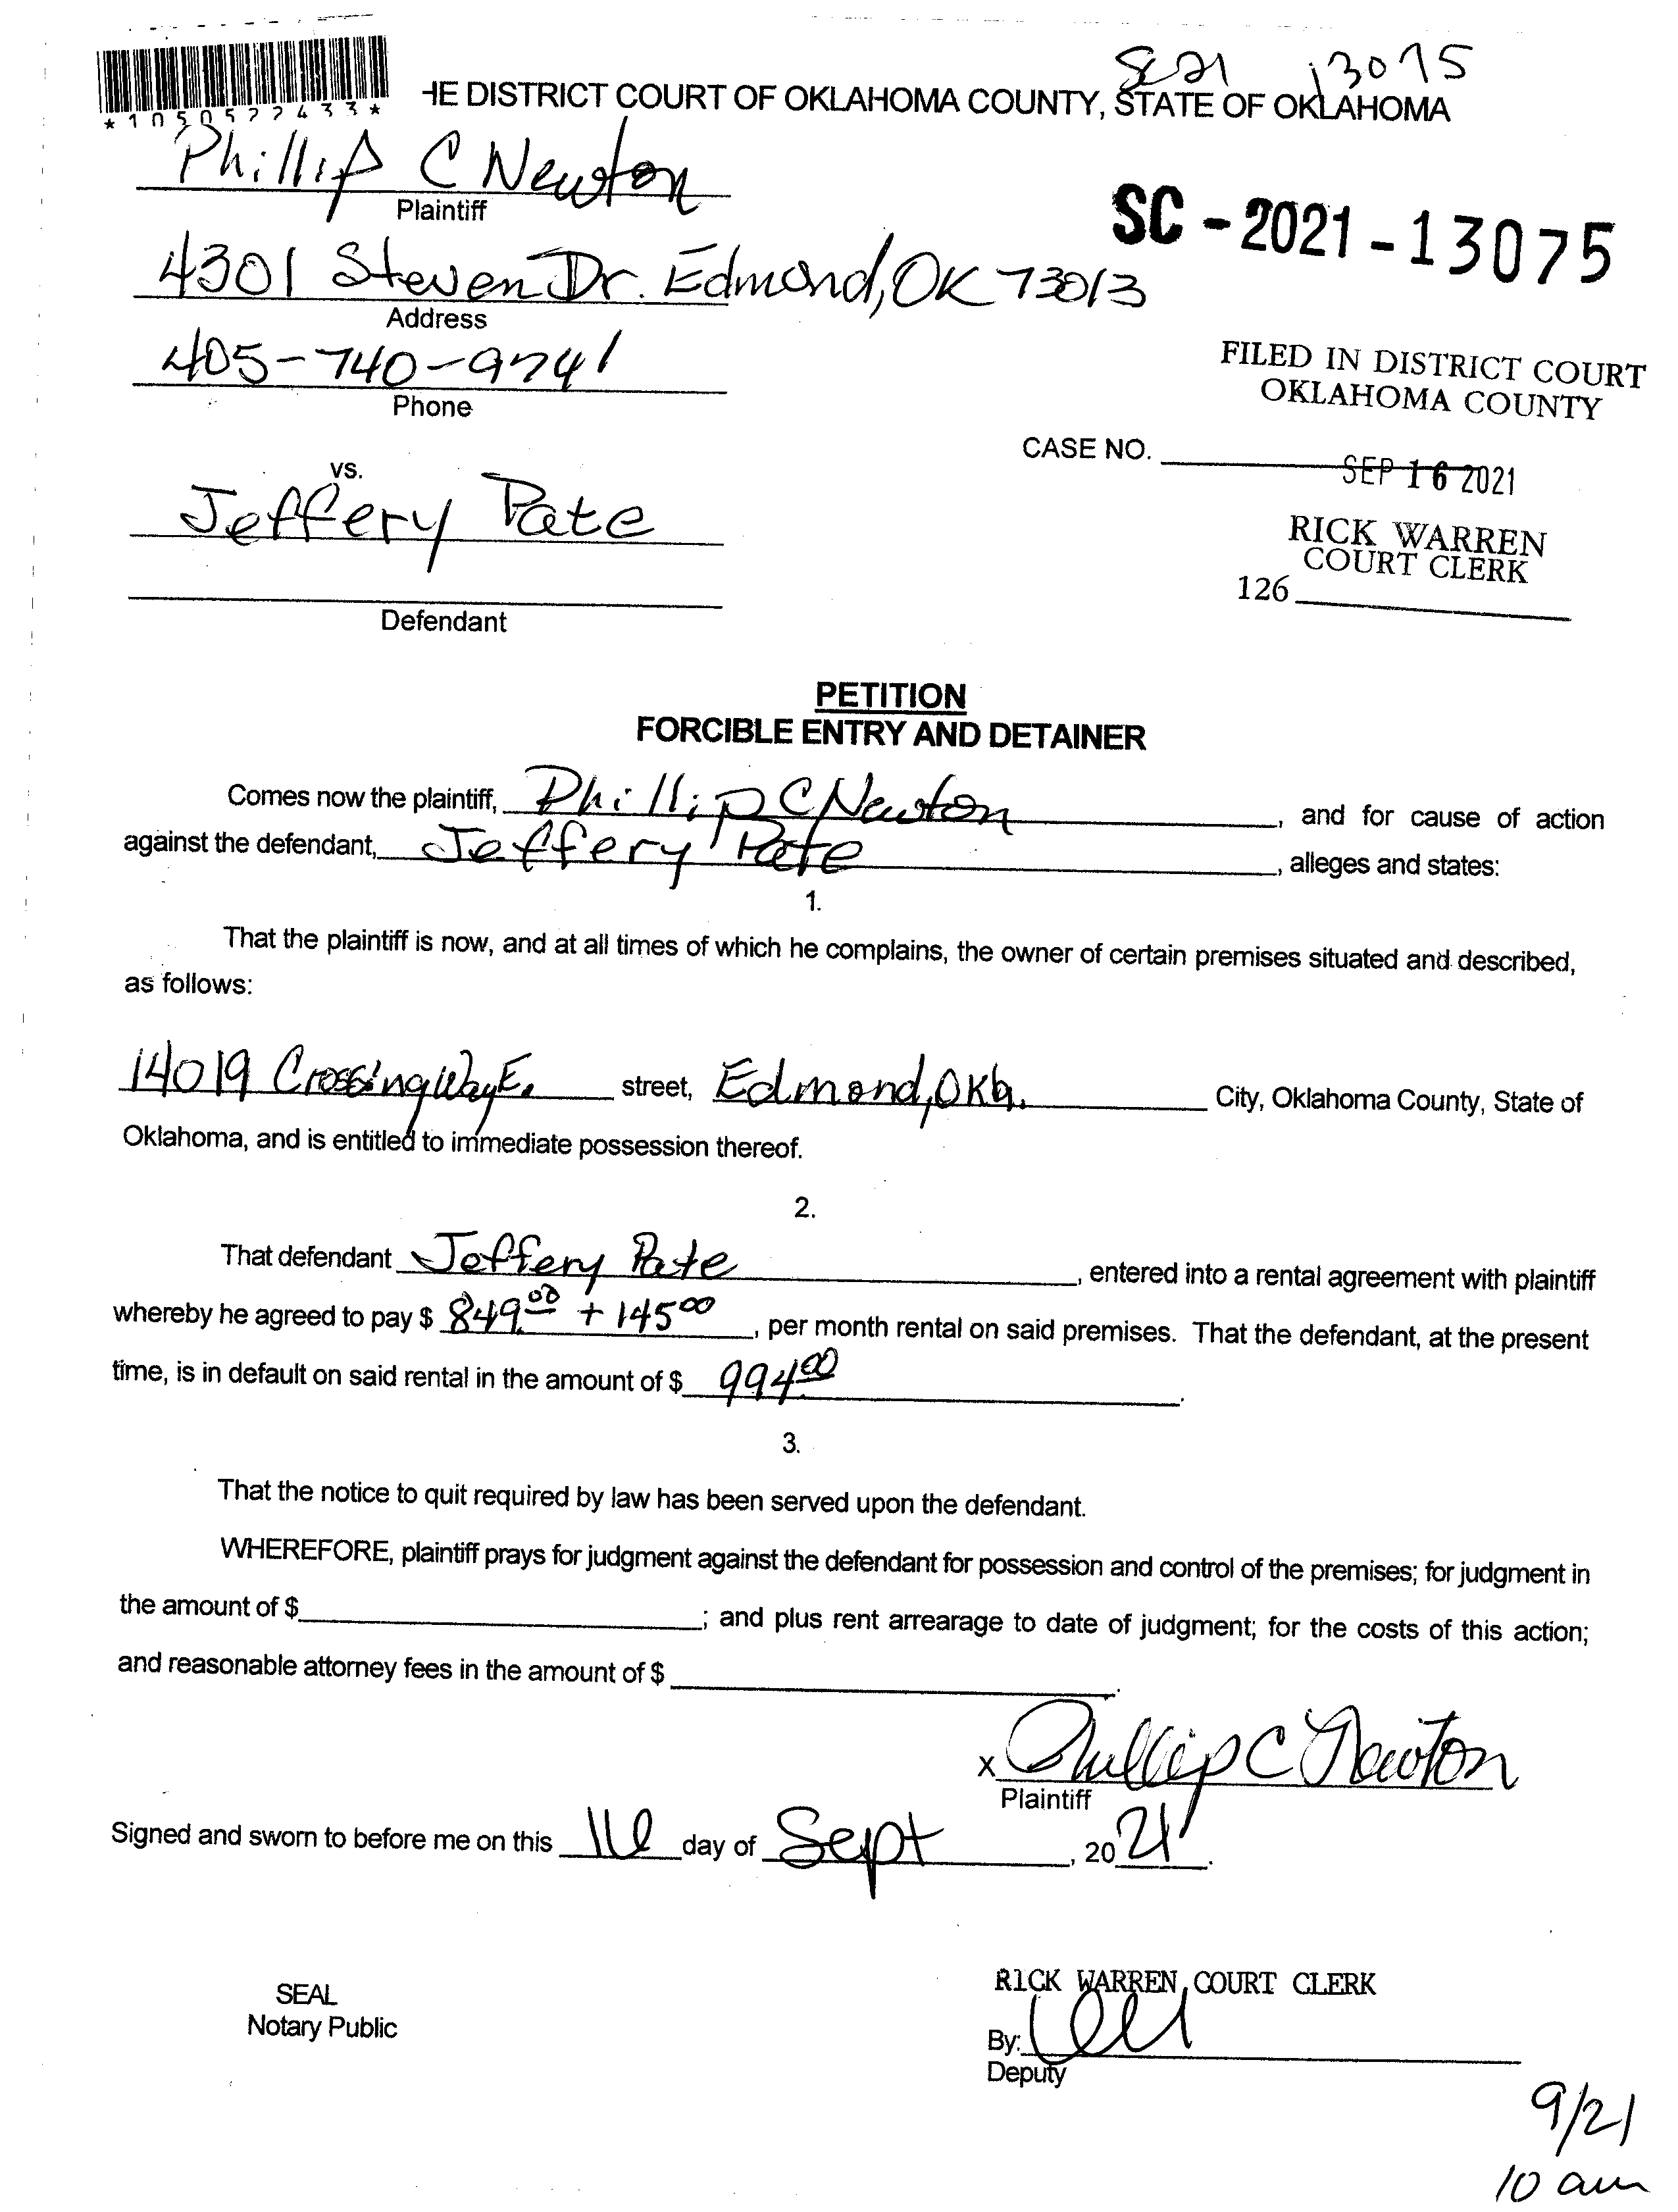 SC 21 13075
HE DISTRICT COURT OF OKLAHOMA COUNTY, STATE OF OKLAHOMA
*1050522433*
Phillip C Newton
Plaintiff
SC - 2021 - 13075
4301 Steven Dr. Edmond, OK 73013
Address
405-740-9741
Phone
FILED IN DISTRICT COURT
OKLAHOMA COUNTY
CASE NO.
SEP 16 2021
vs.
Jeffery Pate
RICK WARREN
COURT CLERK
126
Defendant
PETITION
FORCIBLE ENTRY AND DETAINER
Comes now the plaintiff, Phillip C Newton, and for cause of action
against the defendant, Jeffery Pate, alleges and states:
1.
That the plaintiff is now, and at all times of which he complains, the owner of certain premises situated and described,
as follows:
14019 Crossing Way E. street, Edmond, Okla. City, Oklahoma County, State of
Oklahoma, and is entitled to immediate possession thereof.
2.
That defendant Jeffery Pate, entered into a rental agreement with plaintiff
whereby he agreed to pay $ 849.00 + 145 00, per month rental on said premises. That the defendant, at the present
time, is in default on said rental in the amount of $ 994.00.
3.
That the notice to quit required by law has been served upon the defendant.
WHEREFORE, plaintiff prays for judgment against the defendant for possession and control of the premises; for judgment in
the amount of $; and plus rent arrearage to date of judgment; for the costs of this action;
and reasonable attorney fees in the amount of $.
x Phillip C Newton
Plaintiff
Signed and sworn to before me on this 16 day of Sept, 20 21.
SEAL
Notary Public
RICK WARREN, COURT CLERK
By:
Deputy
9/21
10 am